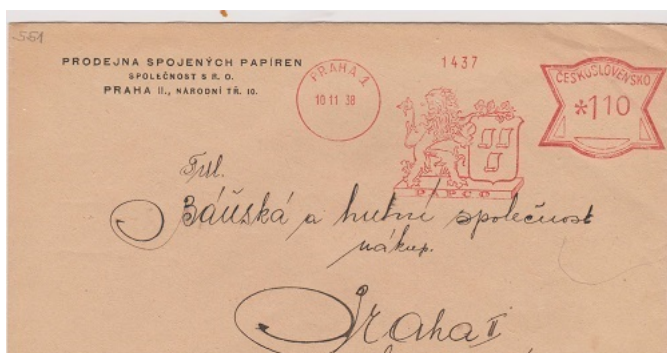 551
PRODEJNA SPOJENÝCH PAPÍREN
SPOLEČNOST S R. O.
PRAHA II., NÁRODNÍ TŘ. 10.
PRAHA 1
10 11 38
1437
PAPCO
ČESKOSLOVENSKO
*110
Báňská a hutní společnost
nákup.
Praha II